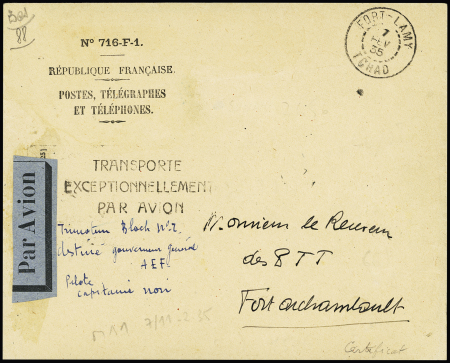 Nº 716-F-1.
RÉPUBLIQUE FRANÇAISE.
POSTES, TÉLÉGRAPHES
ET TÉLÉPHONES.
FORT-LAMY
7
FEV
35
TCHAD
TRANSPORTE
EXCEPTIONNELLEMENT
PAR AVION
Par Avion
Trimoteur Bloch Nº2
destiné gouverneur général
AEF
Pilote
capitaine
Monsieur le Receveur
des PTT
Fort Archambault
Certificat